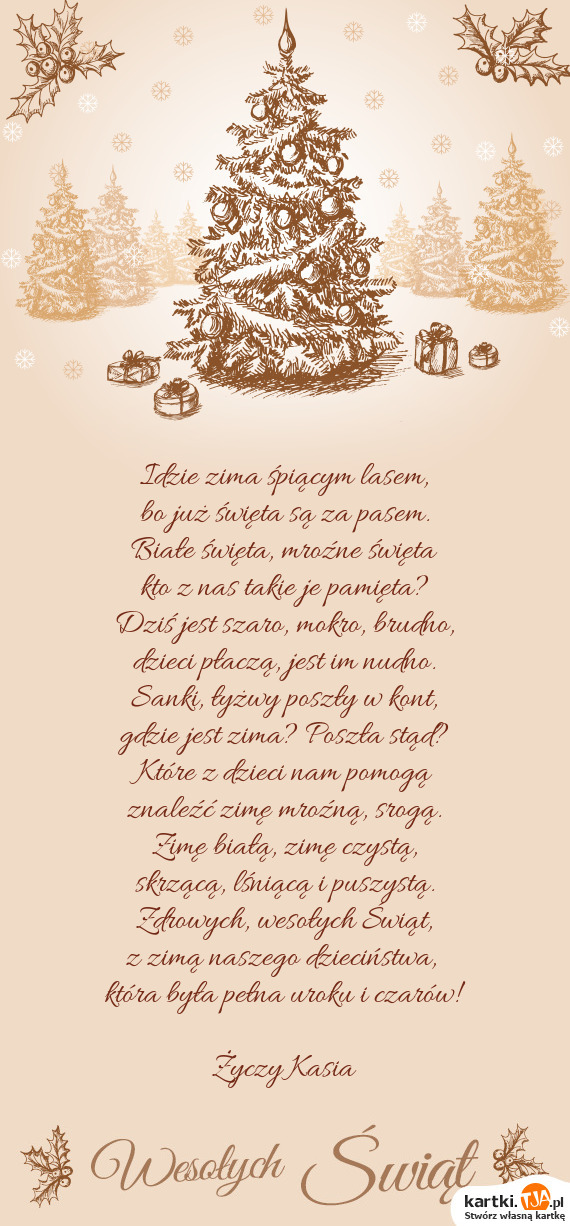 Idzie zima śpiącym lasem,
bo już święta są za pasem.
Białe święta, mroźne święta
kto z nas takie je pamięta?
Dziś jest szaro, mokro, brudno,
dzieci płaczą, jest im nudno.
Sanki, łyżwy poszły w kont,
gdzie jest zima? Poszła stąd?
Które z dzieci nam pomogą
znaleźć zimę mroźną, srogą.
Zimę białą, zimę czystą,
skrzącą, lśniącą i puszystą.
Zdrowych, wesołych Świąt,
z zimą naszego dzieciństwa,
która była pełna uroku i czarów!
Życzy Kasia
Wesołych Świąt
kartki.TJA.pl
Stwórz własną kartkę